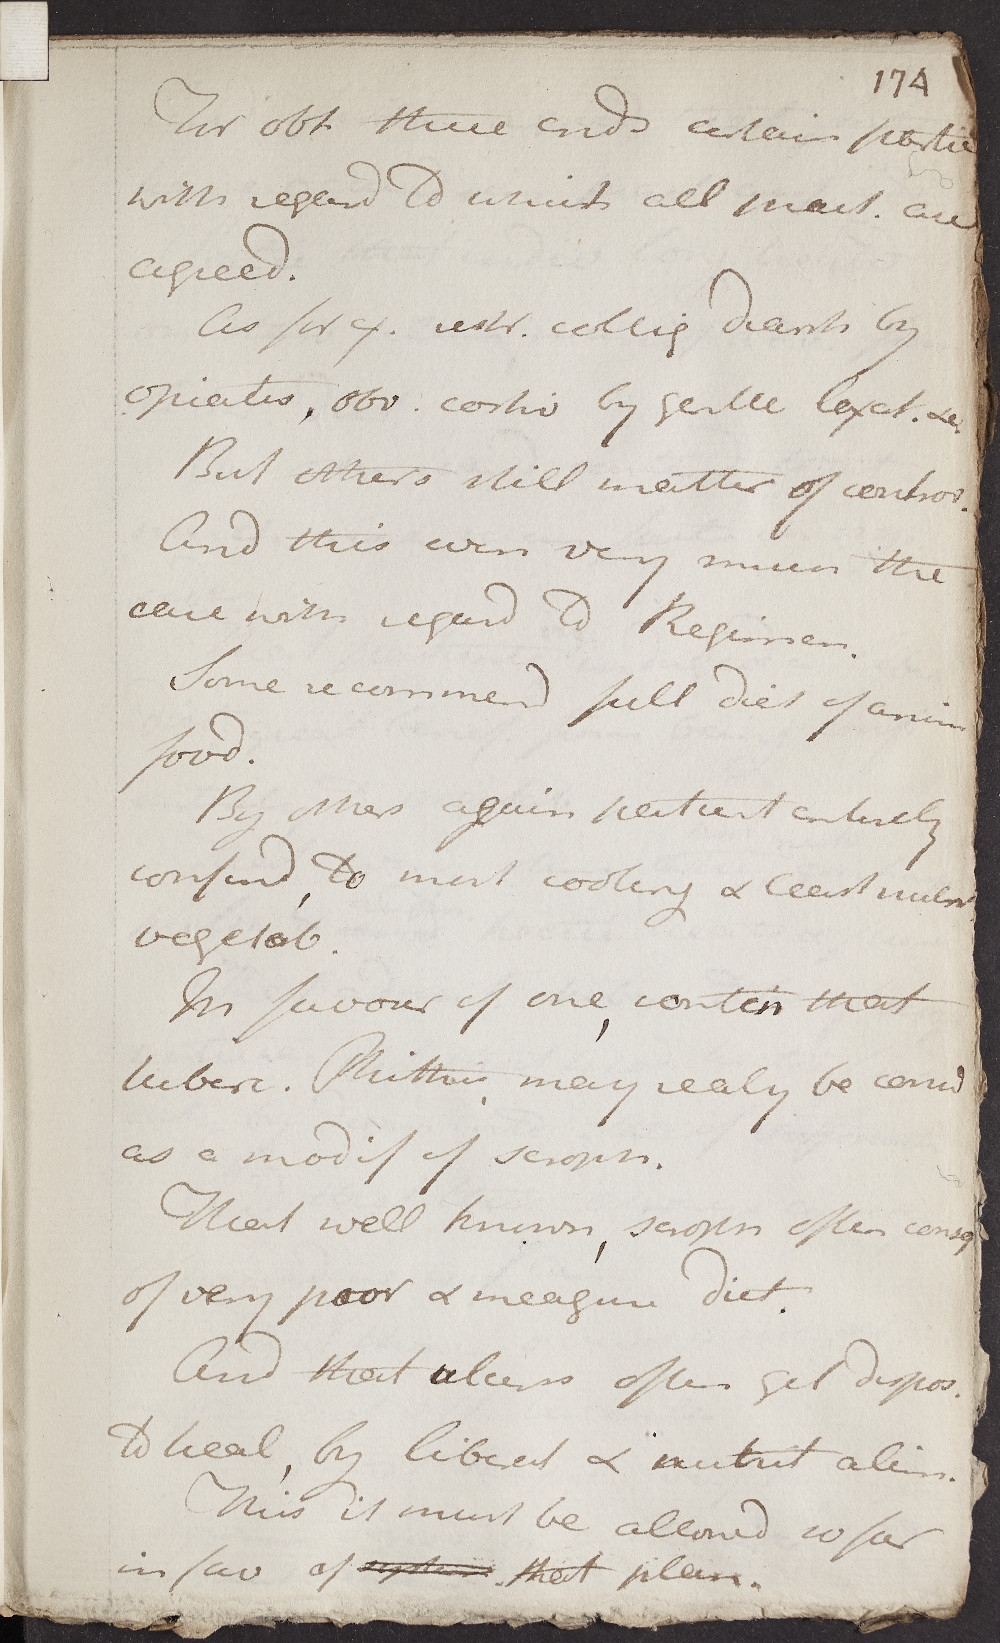 174
For obt. these ends certain partic
with regard to which all pract. are
agreed.
As for ex. restr. colliq diarrh by
opiates, obv. costiv by gentle laxat. &c.
But others still matter of controv.
And this even very much the
case with regard to Regimen.
Some recommend full diet of anim
food.
By others again patient entirely
confind, to most cooling & least nutrit
vegetab.
In favour of one, contin that
tuberc. Phthis, may realy be consd
as a modif of scroph.
That well known, scroph often conseq
of very poor & meagre diet.
And that ulcers often get dispos.
to heal, by liberal & nutrit alim.
This it must be allowed so far
in fav of system. that plan.